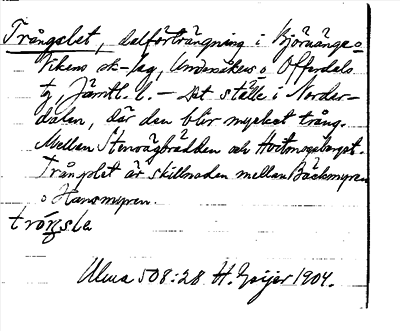 Trångslet, dalförträngning i Björänge o
Vikens sk-lag, Undersåkers o Offerdals
tg Jämtl. l. – Det ställe i Norder-
dalen, där den blir mycket trång.
Mellan Stenvågbrädden och
Trångslet är skillnaden mellan Bäckmyren
o Hansmyren.
tróŋsle
Ulma 508:28 H. Geijer 1904.